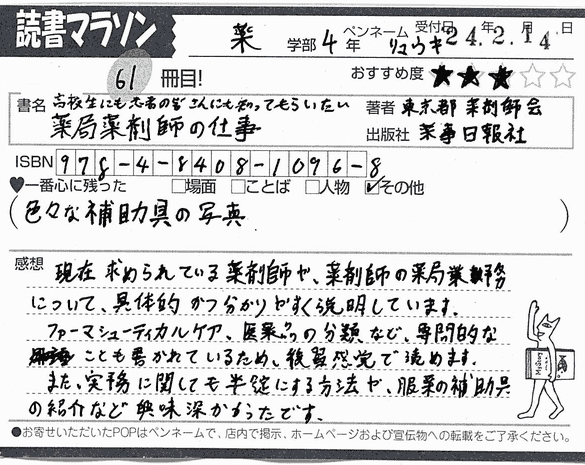 読書マラソン
薬 学部 4 年 ペンネーム リュウキ 受付日 24年 2月 14日
61 冊目!
おすすめ度 ★★★☆☆
書名 高校生にも患者の皆さんにも知ってもらいたい
薬局薬剤師の仕事
著者 東京都薬剤師会
出版社 薬事日報社
ISBN 978-4-8408-1096-8
♥一番心に残った □場面 □ことば □人物 ☑その他
(色々な補助具の写真)
感想 現在求められている薬剤師や、薬剤師の薬局業務
について、具体的かつ分かりやすく説明しています。
ファーマシューティカルケア、医薬品の分類など、専門的な
ことも書かれているため、復習感覚で読めます。
また、実務に関しても半錠にする方法や、服薬の補助具
の紹介など興味深かったです。
●お寄せいただいたPOPはペンネームで、店内で掲示、ホームページおよび宣伝物への転載をご了承ください。